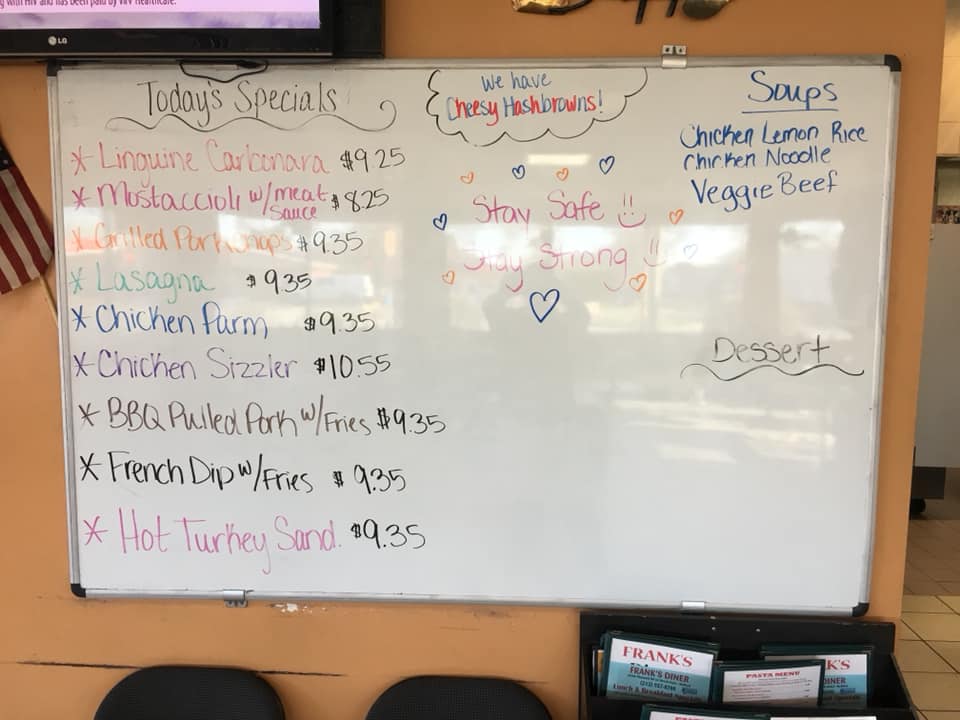 g with HIV and has been paid by ViiV Healthcare.
LG
Today's Specials
* Linguine Carbonara $9.25
* Mostaccioli w/meat sauce $8.25
* Grilled Pork Chops $9.35
* Lasagna $9.35
* Chicken Parm $9.35
* Chicken Sizzler $10.55
* BBQ Pulled Pork w/Fries $9.35
* French Dip w/Fries $9.35
* Hot Turkey Sand. $9.35
We have
Cheesy Hashbrowns!
Stay Safe
Stay Strong
Soups
Chicken Lemon Rice
Chicken Noodle
Veggie Beef
Dessert
FRANK'S
FRANK'S DINER
Lunch & Breakfast Specials
PASTA MENU
K'S
DINER
FRANK'S